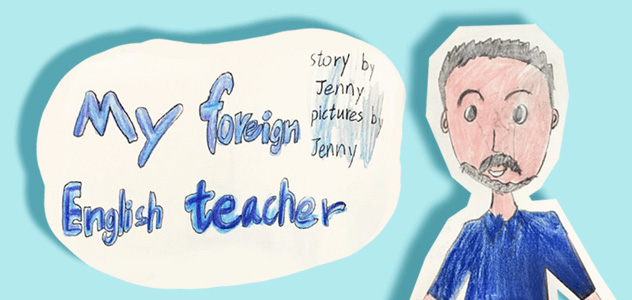 My foreign
English teacher
story by
Jenny
pictures by
Jenny